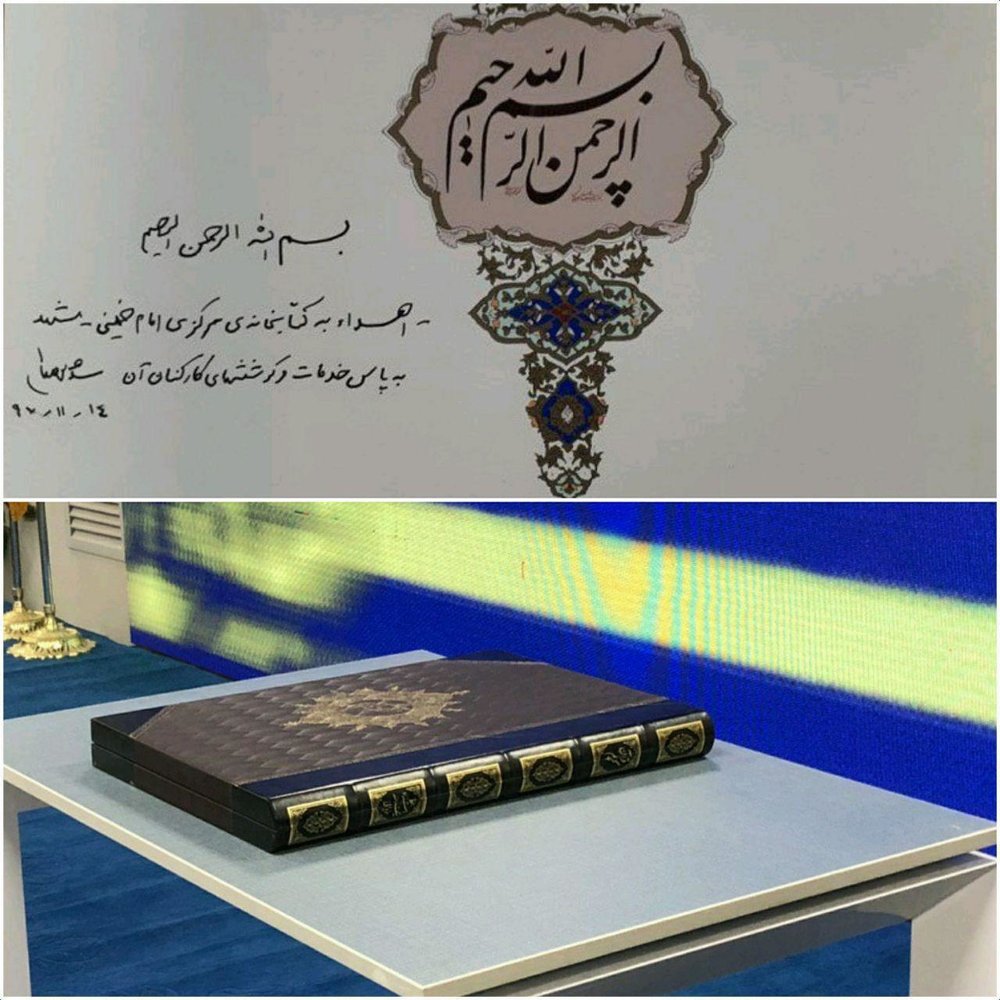 بسم الله الرحمن الرحیم
بسم الله الرحمن الرحیم
- اهداء به کتابخانه‌ی مرکزی امام خمینی -
به پاس خدمات و کوششهای کارکنان آن
۹۷-۱۱-۱٤